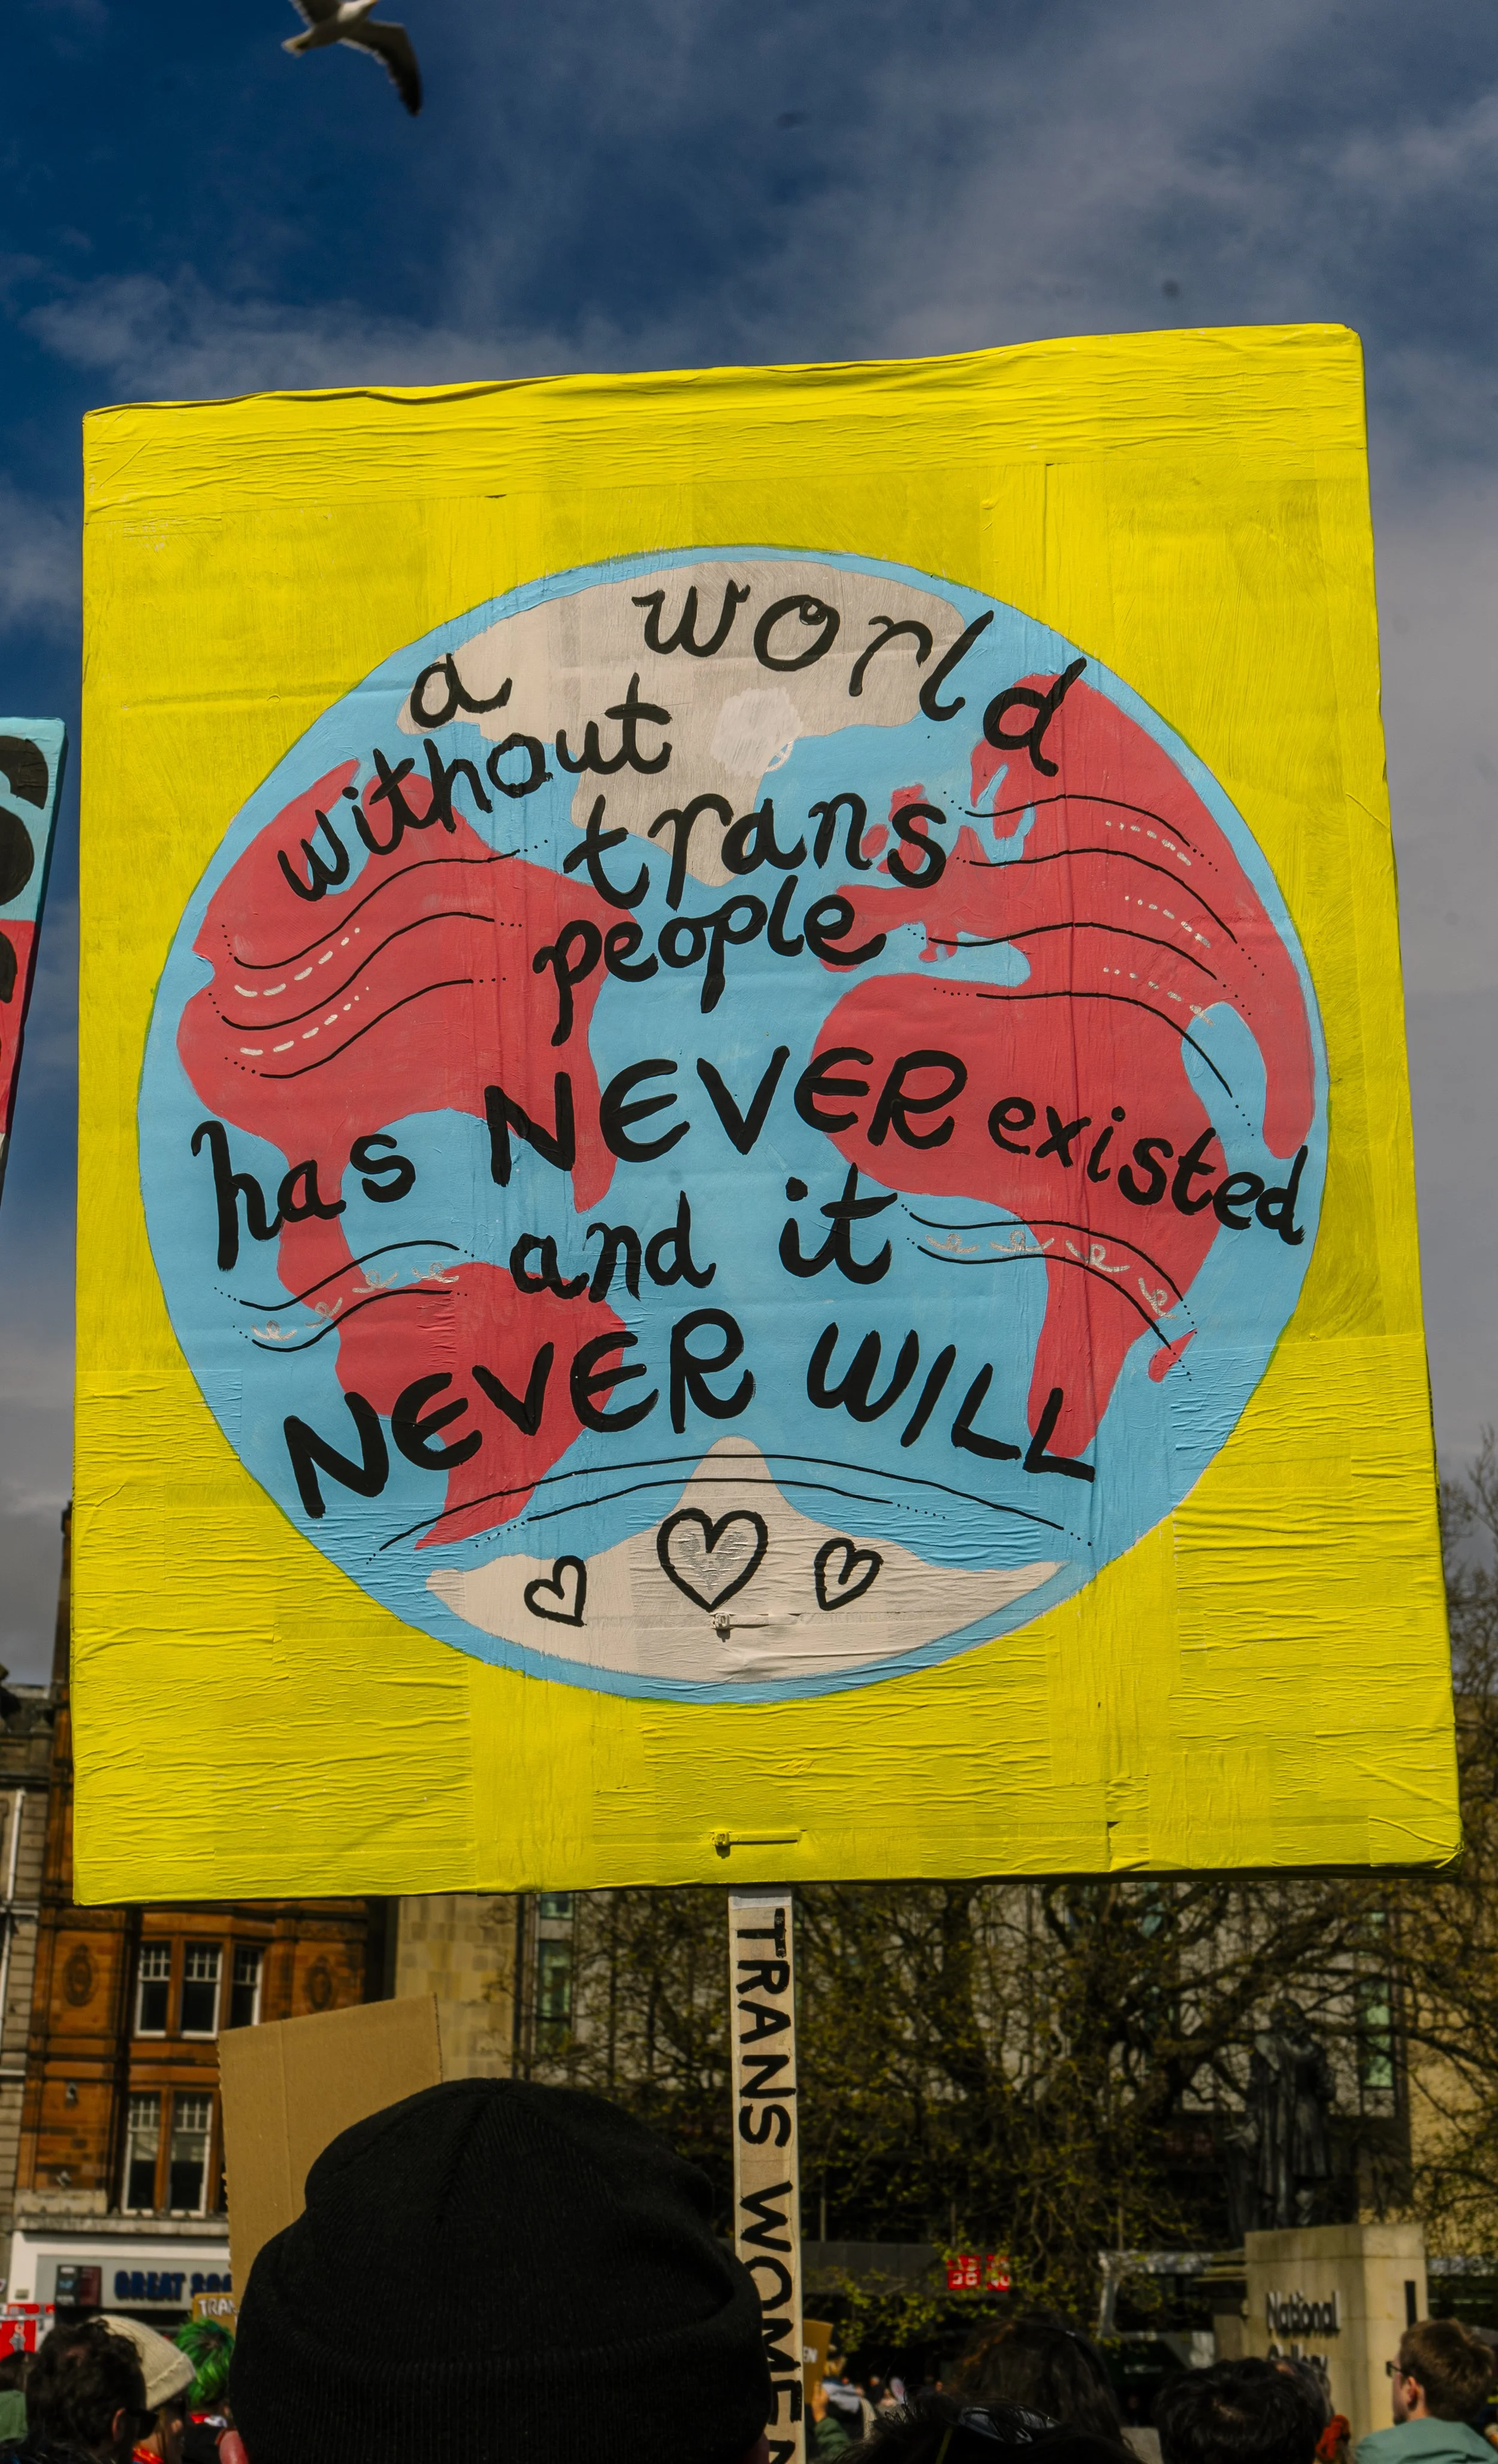 a world
without
trans
people
has NEVER existed
and it
NEVER WILL
TRANS WOMEN
GREAT
TRAN
National
Gallery